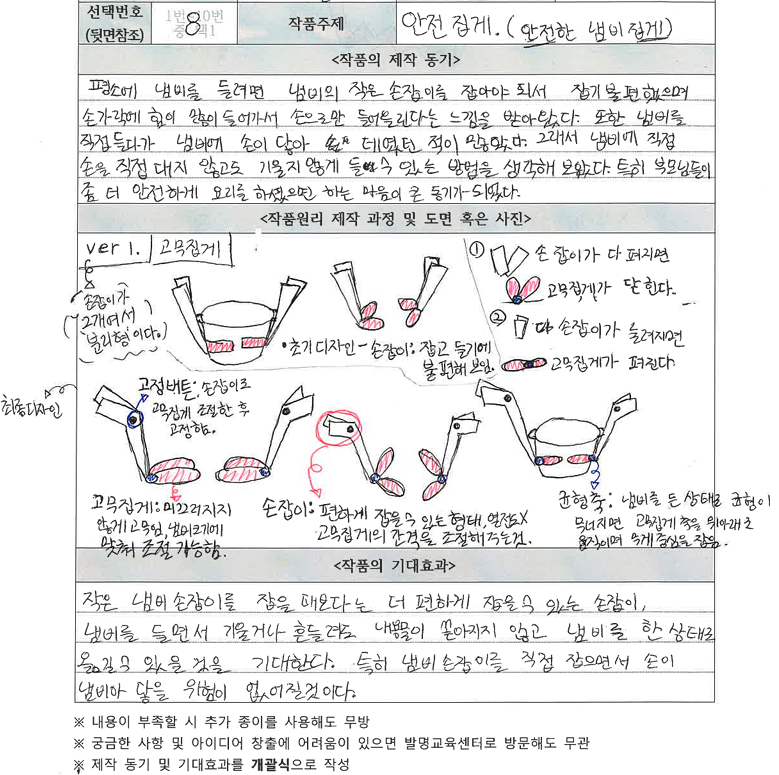 선택번호
(뒷면참조)
8
작품주제
안전 집게. (안전한 냄비집게)
<작품의 제작 동기>
평소에 냄비를 들려면 냄비의 작은 손잡이를 잡아야 되서 잡기 불편했으며
손가락에 힘이 많이 들어가서 손으로만 들어올린다는 느낌을 받아왔다. 또한 냄비를
직접 들다가 냄비에 손이 닿아 데였던 적이 많았다. 그래서 냄비에 직접
손을 직접 대지 않고도 기울지 않게 들 수 있는 방법을 생각해 보았다. 특히 부모님들이
좀 더 안전하게 요리를 하셨으면 하는 마음이 큰 동기가 되었다.
<작품원리 제작 과정 및 도면 혹은 사진>
ver 1. 고무집게
손잡이가
2개여서
'분리형'이다.
①
손잡이가 다 펴지면
고무집게가 닫힌다.
②
다 손잡이가 눌려지면
고무집게가 펴진다.
•초기디자인-손잡이: 잡고 들기에
불편해 보임.
최종디자인
고정버튼: 손잡이로
고무집게 조절한 후
고정함.
고무집게: 미끄러지지
않게 고무임, 냄비크기에
맞춰 조절 가능함.
손잡이: 편하게 잡을수 있는 형태, 열전도X
고무집게의 간격을 조절해주는것.
균형축: 냄비를 든 상태로 균형이
무너지면 고무집게 쪽을 위아래로
움직이며 무게 중심을 잡음.
<작품의 기대효과>
작은 냄비 손잡이를 잡을 때보다는 더 편하게 잡을수 있는 손잡이,
냄비를 들면서 기울거나 흔들려도 내용물이 쏟아지지 않고 냄비를 한 상태로
옮길수 있을 것을 기대한다. 특히 냄비손잡이를 직접 잡으면서 손이
냄비아 닿을 위험이 없어질것이다.
※ 내용이 부족할 시 추가 종이를 사용해도 무방
※ 궁금한 사항 및 아이디어 창출에 어려움이 있으면 발명교육센터로 방문해도 무관
※ 제작 동기 및 기대효과를 개괄식으로 작성